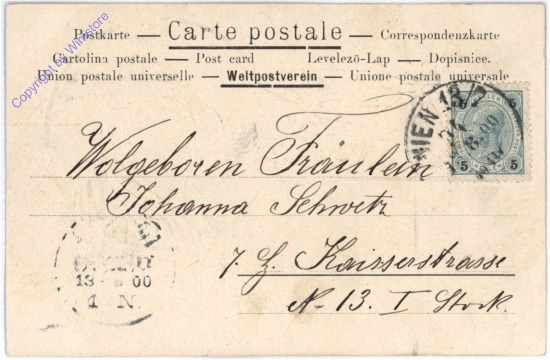 Postkarte — Carte postale — Correspondenzkarte
Cartolina postale — Post card Levelező-Lap — Dopisnice.
Union postale universelle — Weltpostverein — Unione postale universale
Copyright by Winstore
WIEN 13/7
8.00
5 5
Wolgeboren Fräulein
Johanna Schwetz
7. H. Kaiserstrasse
N- 13. I Stock.
13 8 00
1 N